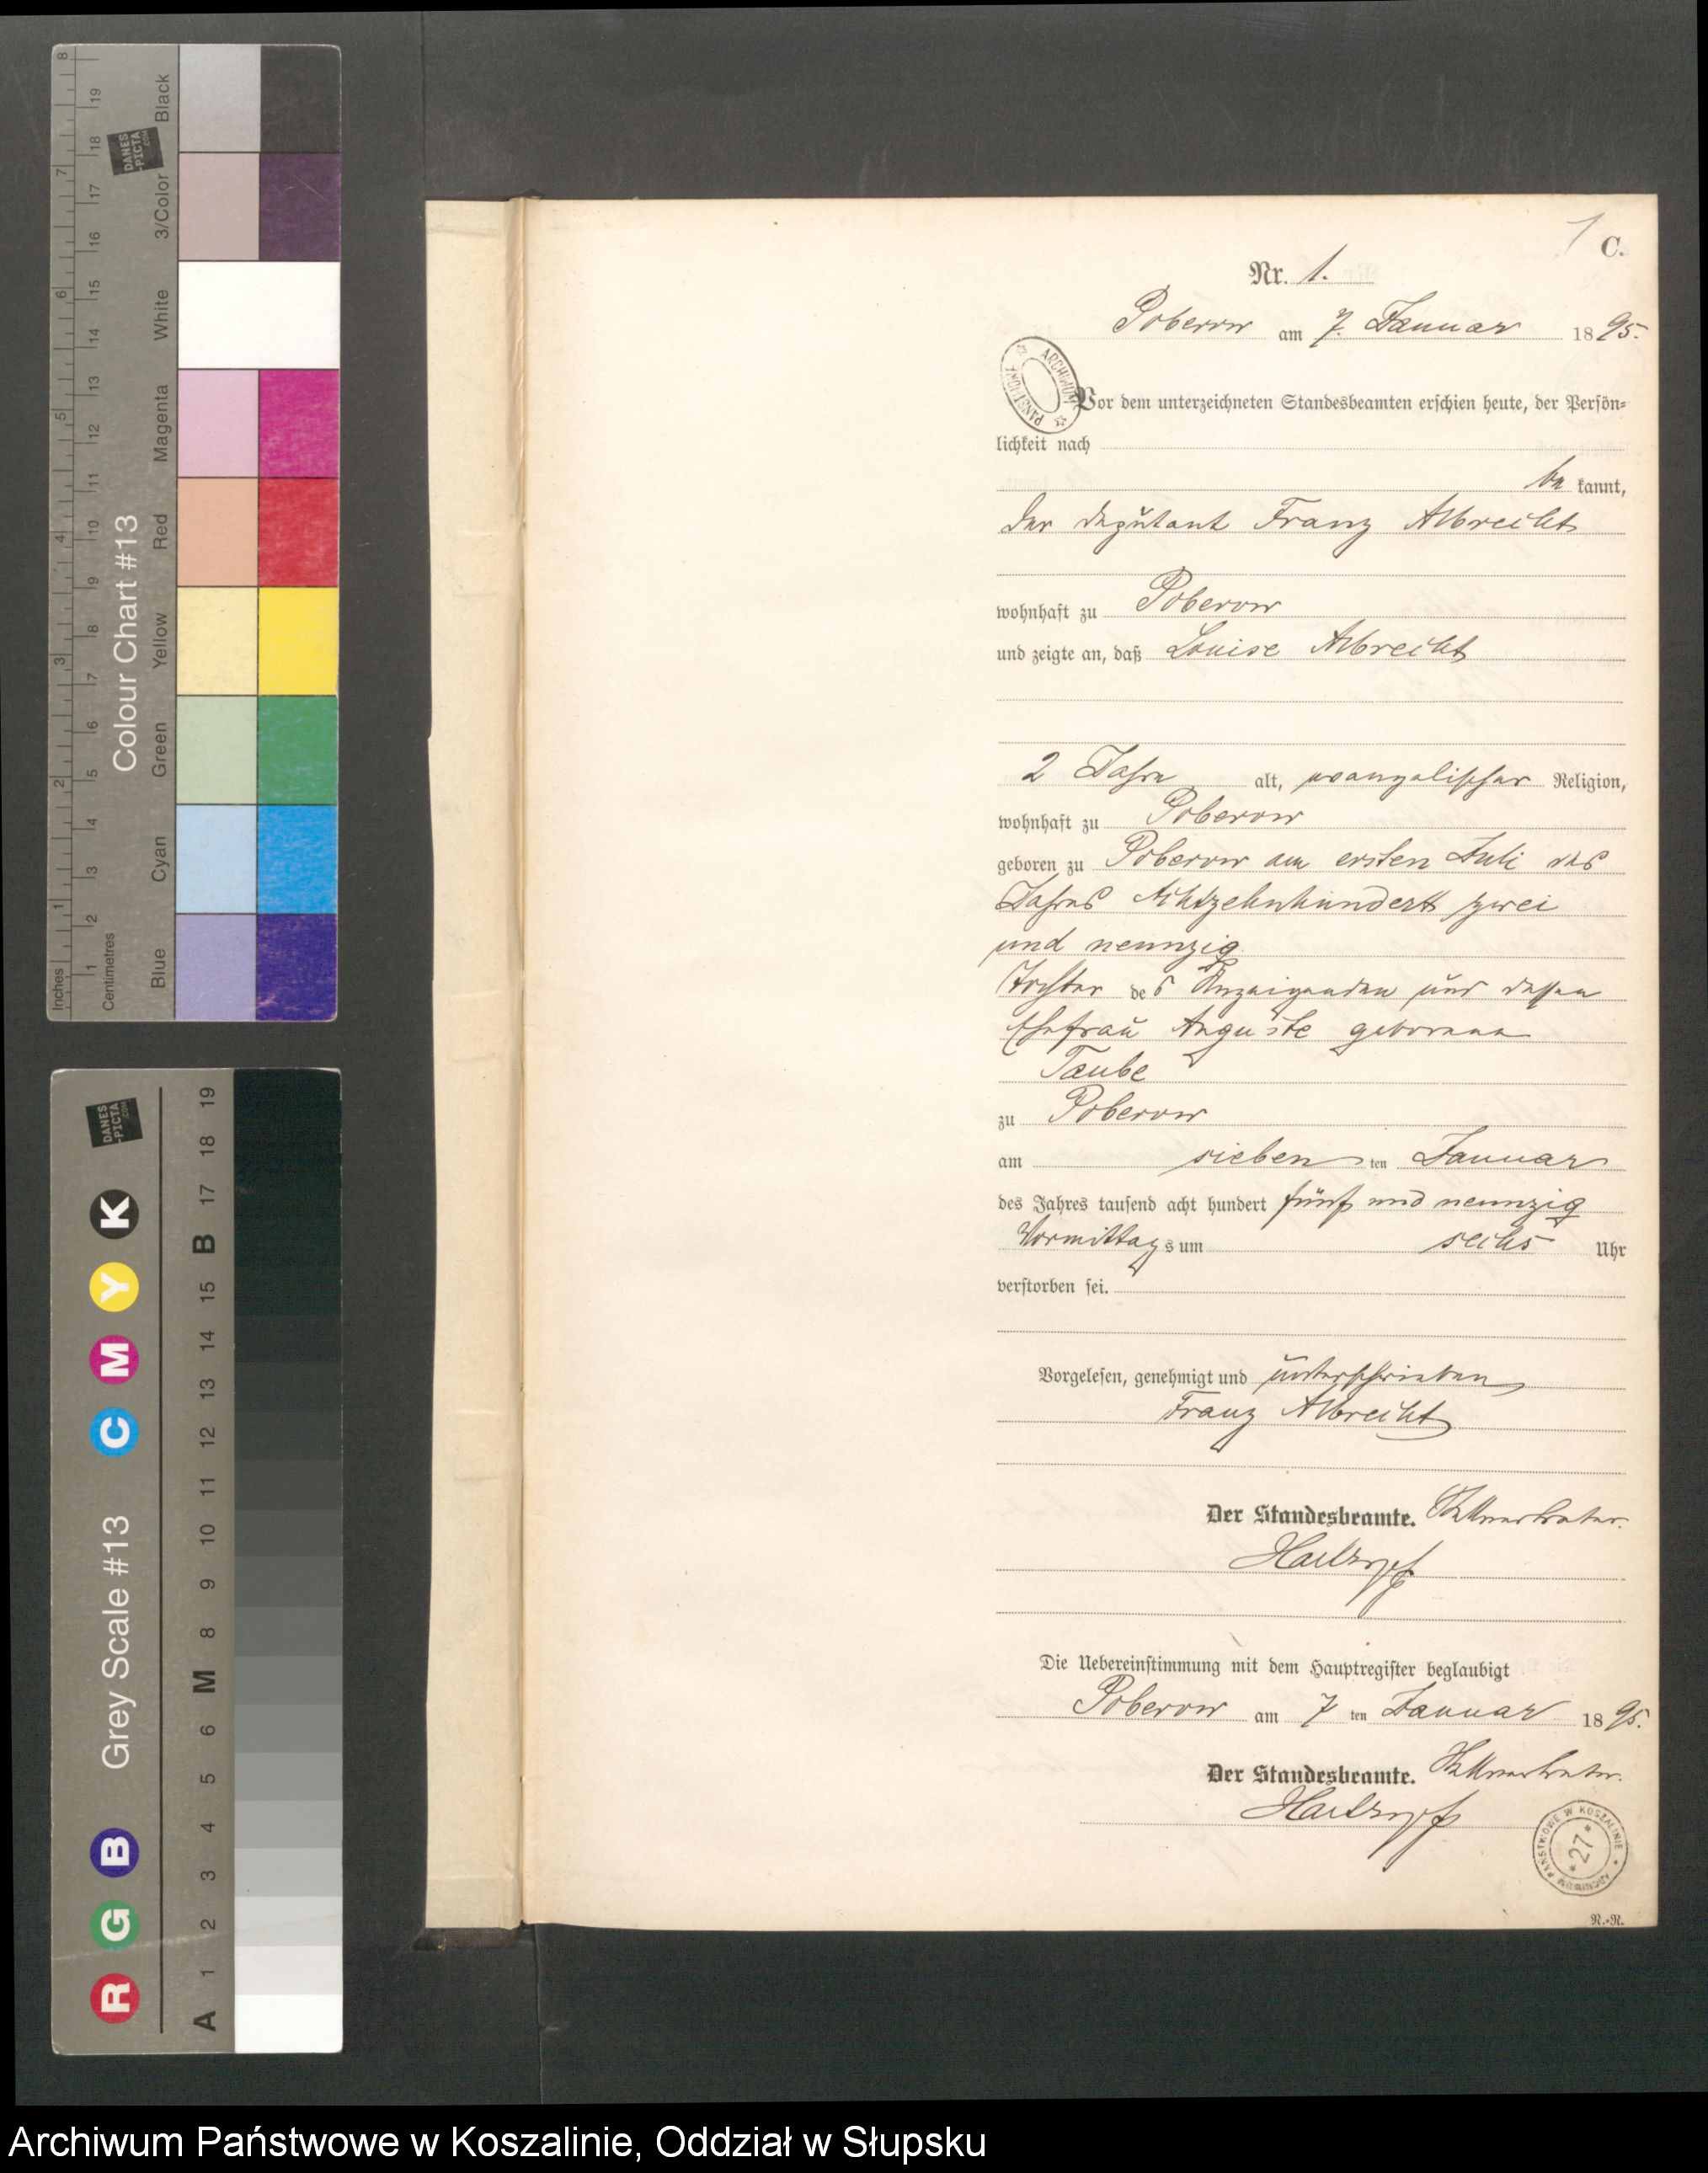 1 C.
Nr. 1.
Poberow am 7. Januar 1895.
ARCHIWUM PAŃSTWOWE
Vor dem unterzeichneten Standesbeamten erschien heute, der Persön-
lichkeit nach
be kannt,
der Deputant Franz Albrecht
wohnhaft zu Poberow
und zeigte an, daß Louise Albrecht
2 Jahre alt, evangelischer Religion,
wohnhaft zu Poberow
geboren zu Poberow am ersten Juli des
Jahres Achtzehnhundert zwei
und neunzig
Tochter des Anzeigenden und dessen
Ehefrau Auguste geborene
Taube
zu Poberow
am sieben ten Januar
des Jahres tausend acht hundert fünf und neunzig
Vormittags um sechs Uhr
verstorben sei.
Vorgelesen, genehmigt und unterschrieben
Franz Albrecht
Der Standesbeamte. Stellvertreter.
Die Uebereinstimmung mit dem Hauptregister beglaubigt
Poberow am 7 ten Januar 1895.
Der Standesbeamte. Stellvertreter.
ARCHIWUM PAŃSTWOWE W KOSZALINIE
* 27 *
R.-R.
Colour Chart #13
DANES
-PICTA
.COM
Inches 1 2 3 4 5 6 7 8
Centimetres 1 2 3 4 5 6 7 8 9 10 11 12 13 14 15 16 17 18 19
Blue Cyan Green Yellow Red Magenta White 3/Color Black
Grey Scale #13
DANES
-PICTA
.COM
R G B C M Y K
A 1 2 3 4 5 6 M 8 9 10 11 12 13 14 15 B 17 18 19
Archiwum Państwowe w Koszalinie, Oddział w Słupsku